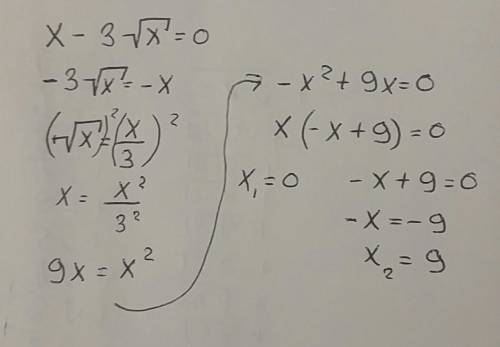 x - 3√x = 0
-3√x = -x
(-√x)² = (x/3)²
x = x²/3²
9x = x²
→ -x² + 9x = 0
x(-x + 9) = 0
x₁ = 0    -x + 9 = 0
-x = -9
x₂ = 9